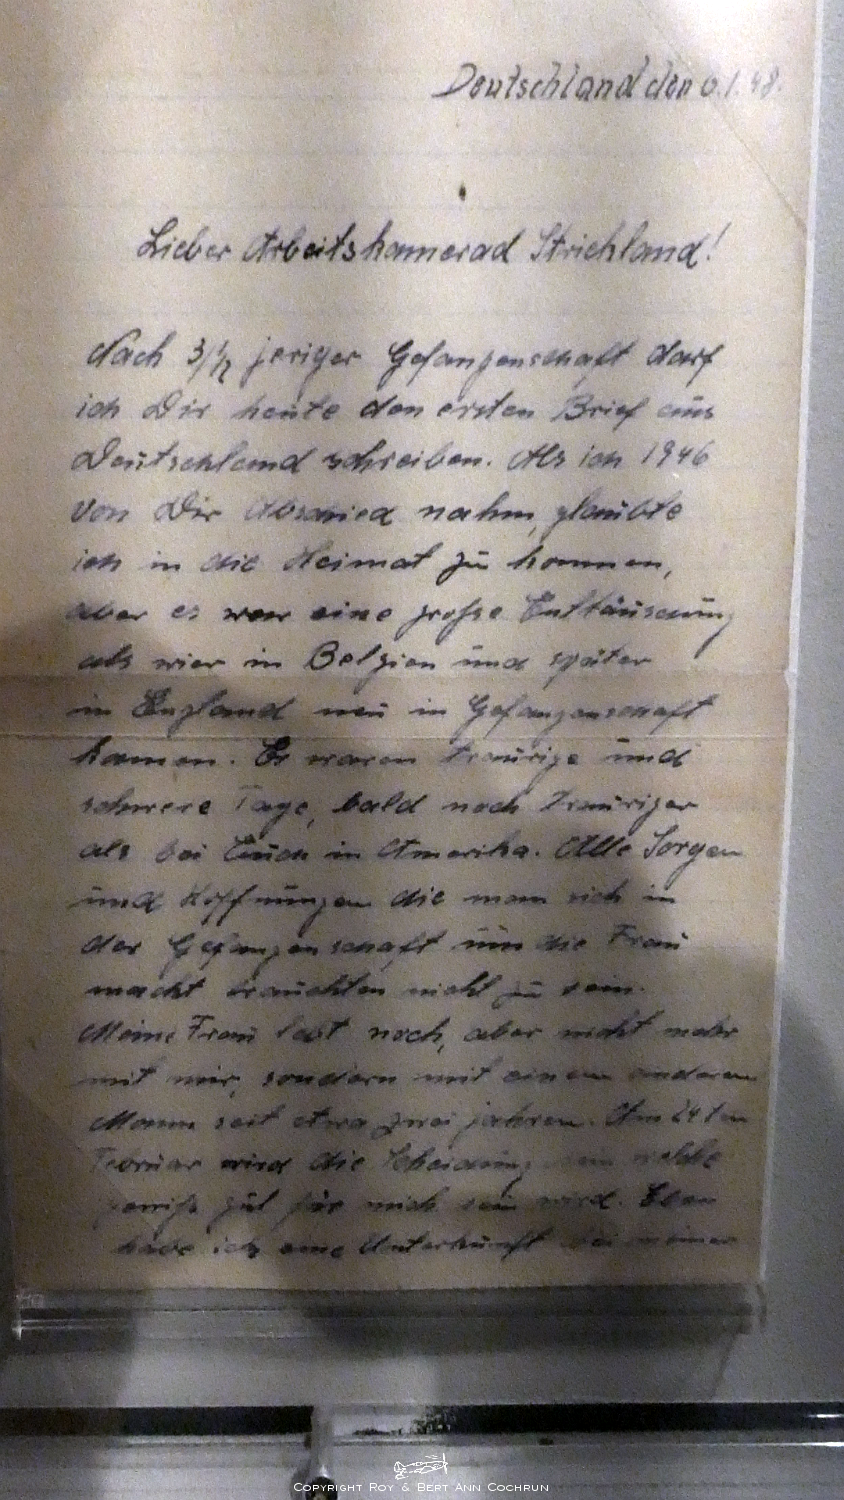 Deutschland den 6.1.48.
Lieber Arbeitskamerad Strichland!
Nach 3 1/2 jeriger Gefangenschaft darf
ich Dir heute den ersten Brief aus
Deutschland schreiben. Als ich 1946
von Dir Abschied nahm, glaubte
ich in die Heimat zu kommen,
aber es war eine große Enttäuschung
als wier in Belgien und später
in England neu in Gefangenschaft
kamen. Es waren traurige und
schwere Tage, bald noch trauriger
als bei Euch in Amerika. Alle Sorgen
und Hoffnungen die man sich in
der Gefangenschaft um die Frau
macht brauchten nicht zu sein.
Meine Frau lebt noch, aber nicht mehr
mit mir, sondern mit einem anderen
Mann seit etwa zwei jahren. Am 24ten
Februar wird die Scheidung sein welche
gewiß gut für mich sein wird. Eben
habe ich eine Unterkunft bei meiner
COPYRIGHT ROY & BERT ANN COCHRUN